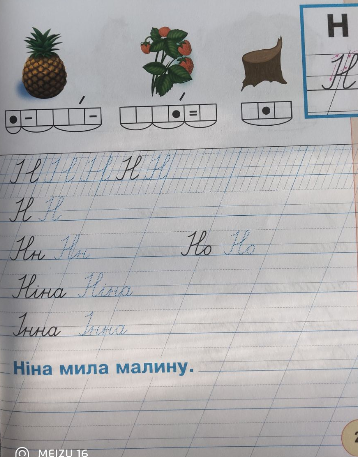 Н
Н
Н Н Н Н Н
Н Н
Нн Нн Но Но
Ніна Ніна
Інна Інна
Ніна мила малину.
2
MEIZU 16